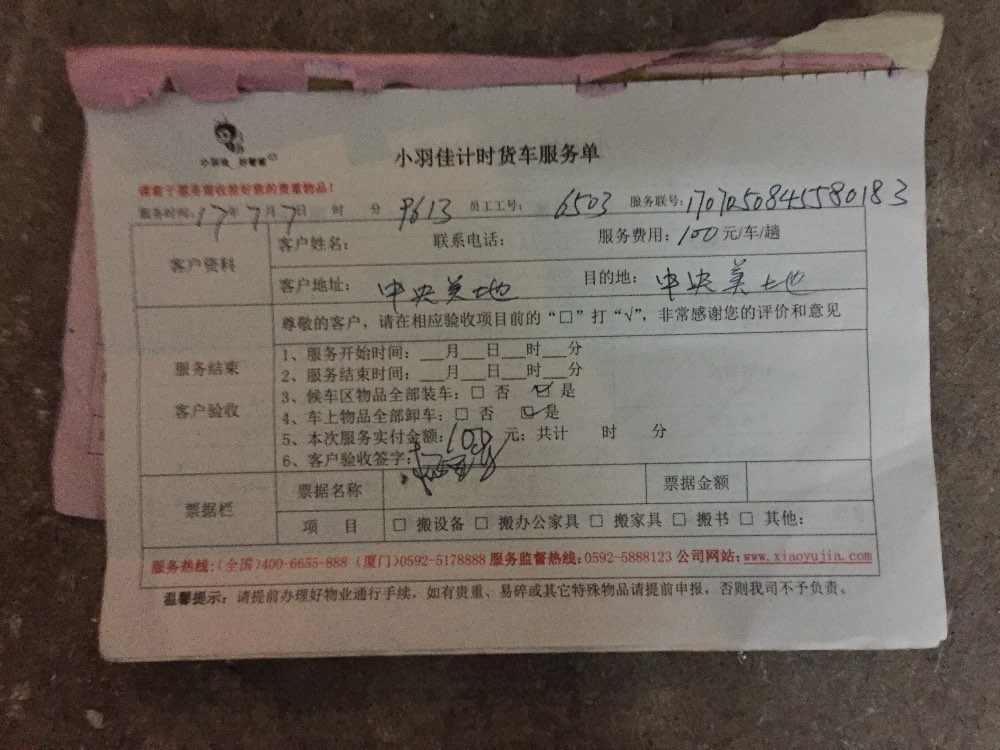 小羽佳 好管家
小羽佳计时货车服务单
请您于服务前收拾好您的贵重物品！
服务时间：17年7月7日 时 分 9613 员工工号： 6503 服务联号：170705084558018 3
客户资料
客户姓名： 联系电话： 服务费用：100元/车/趟
客户地址： 中央美地 目的地： 中央美地
尊敬的客户，请在相应验收项目前的“□”打“√”，非常感谢您的评价和意见
服务结束
客户验收
1、服务开始时间：___月___日___时___分
2、服务结束时间：___月___日___时___分
3、候车区物品全部装车：□ 否 ☑ 是
4、车上物品全部卸车：□ 否 ☑ 是
5、本次服务实付金额：100 元；共计 时 分
6、客户验收签字：
票据栏
票据名称 票据金额
项 目 □ 搬设备 □ 搬办公家具 □ 搬家具 □ 搬书 □ 其他：
服务热线：(全国)400-6655-888 (厦门)0592-5178888 服务监督热线：0592-5888123 公司网站：www.xiaoyujia.com
温馨提示：请提前办理好物业通行手续，如有贵重、易碎或其它特殊物品请提前申报，否则我司不予负责。